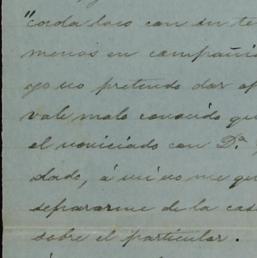 "cada loco con su te
menos en compañía
yo no pretendo dar ap
vale malo conocido qu
el noviciado con Dª.
dado, á mí no me qu
separarme de la cas
sobre el particular.